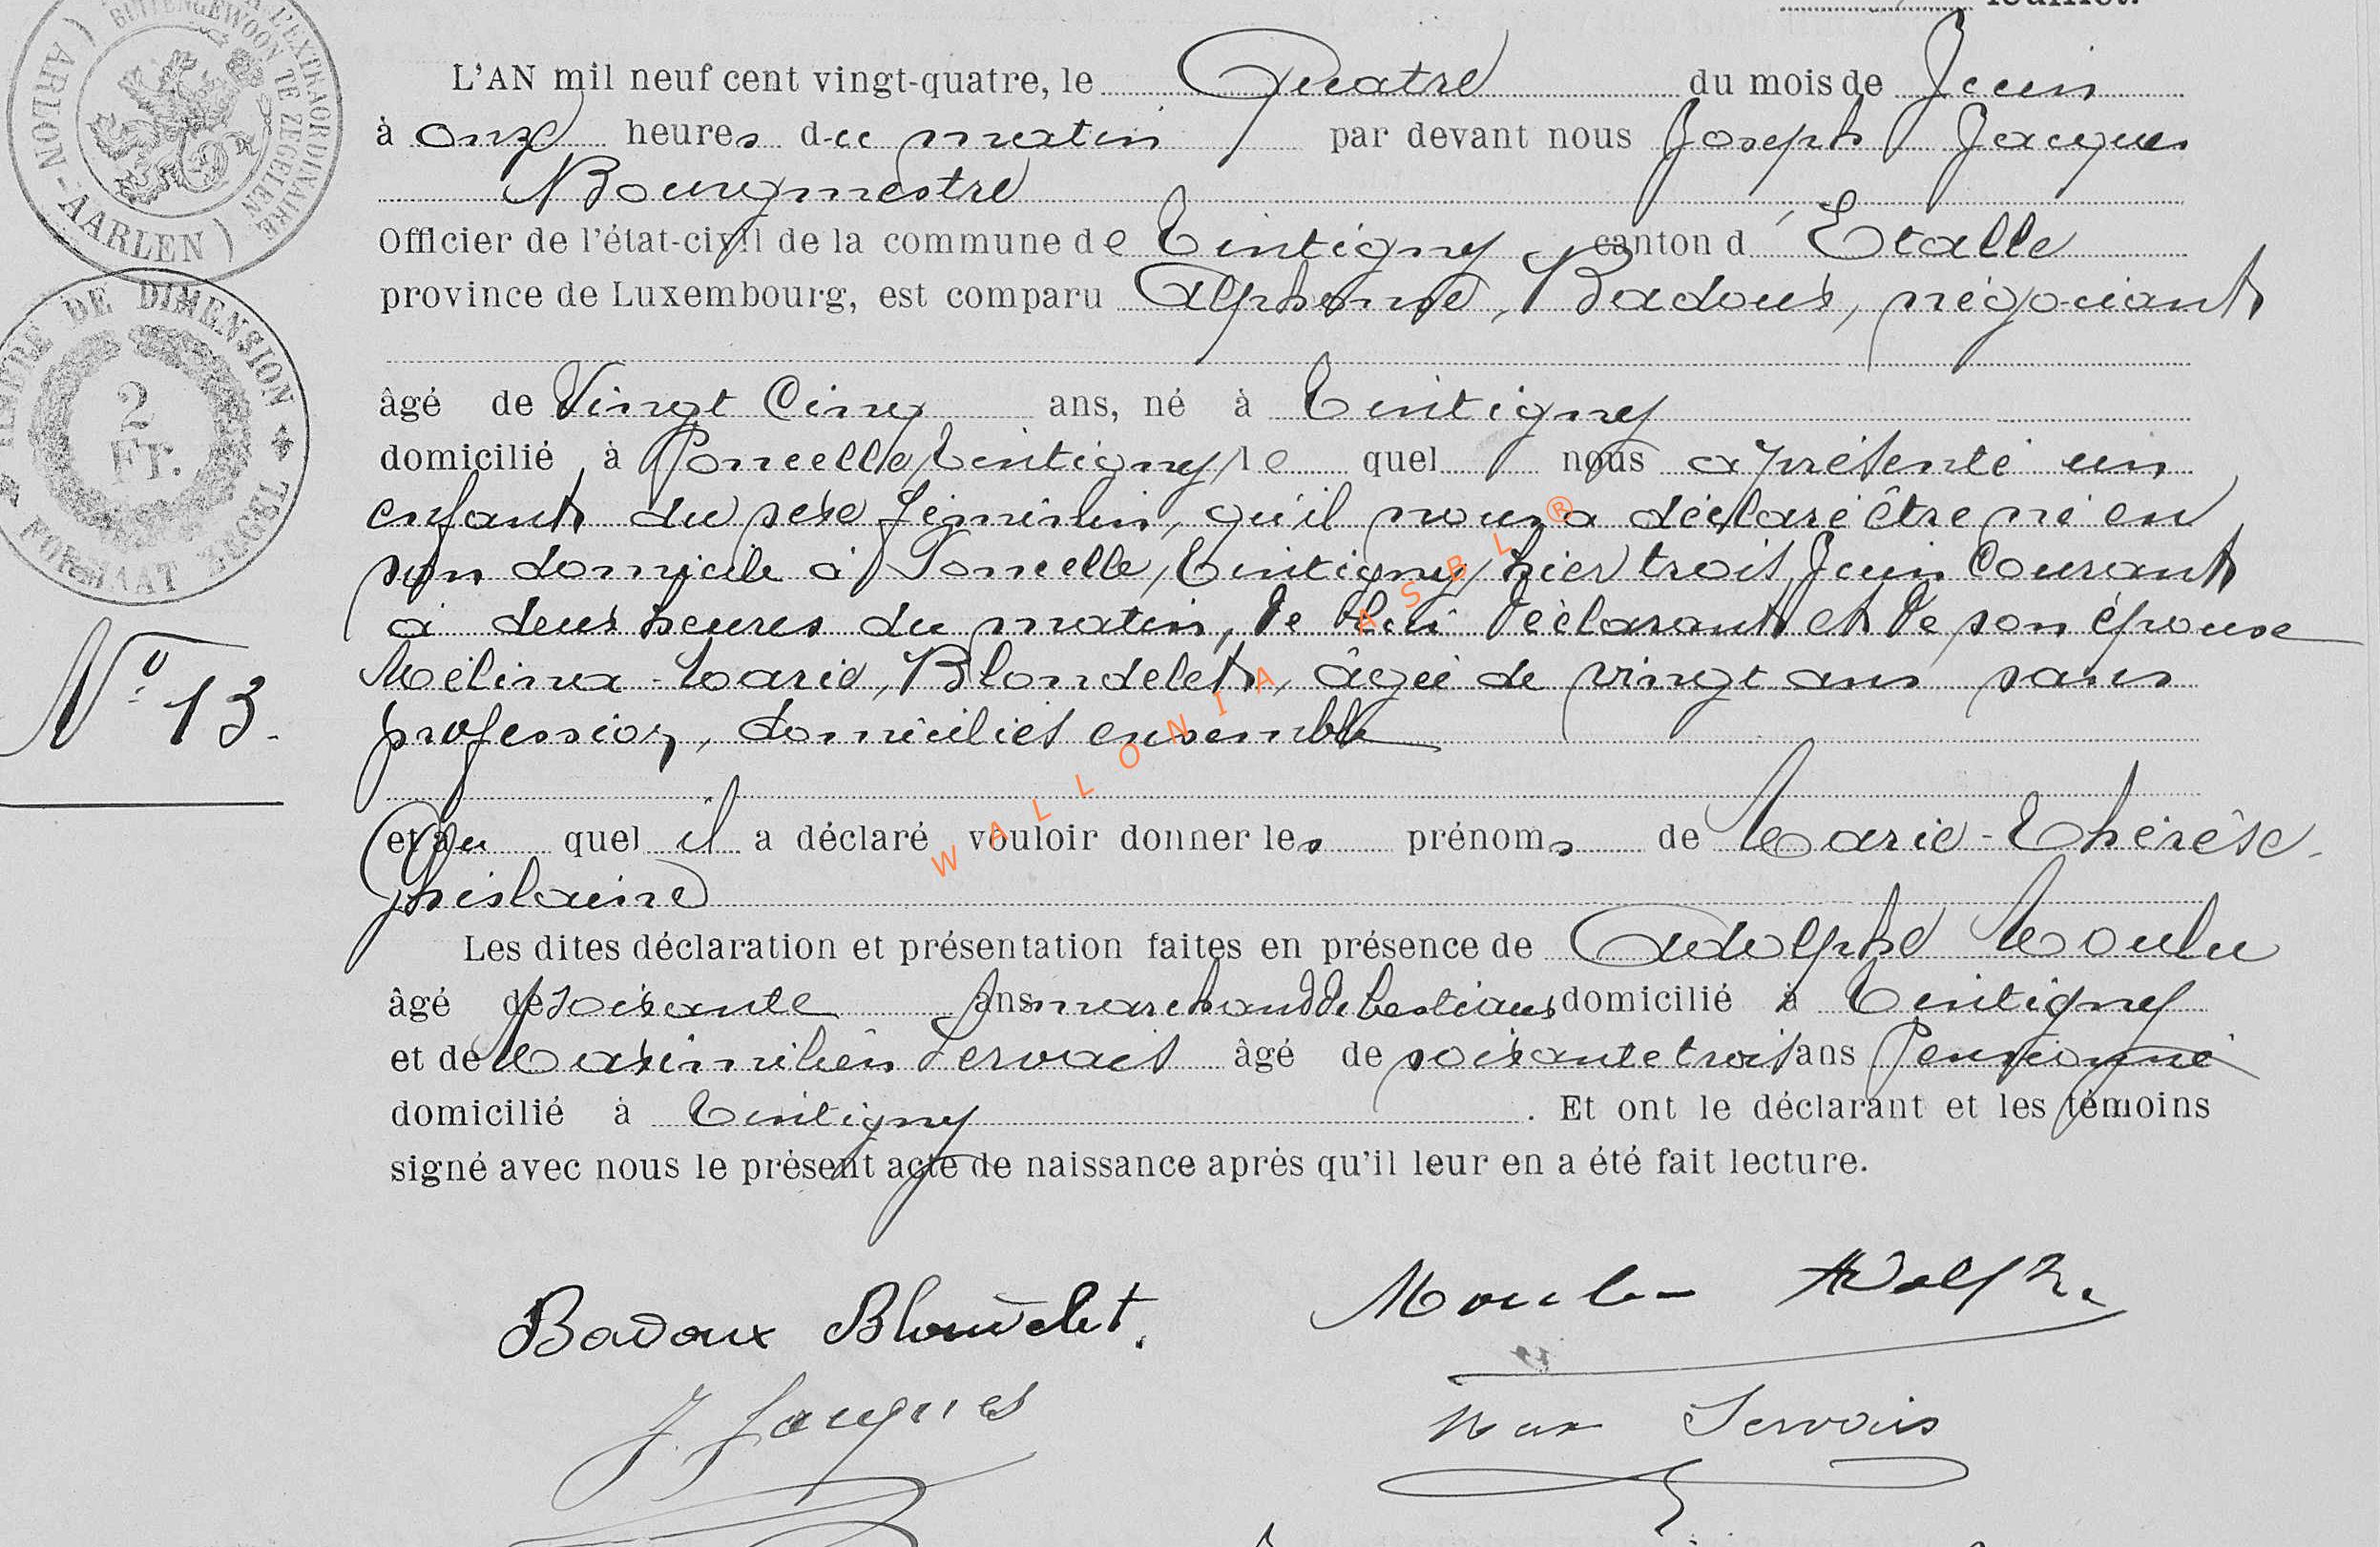 feuillet.
L'EXTRAORDINAIRE
BUITENGEWOON TE ZEGELEN
( ARLON - AARLEN )
L'AN mil neuf cent vingt-quatre, le Quatre du mois de Juin
à onze heures du matin par devant nous Joseph Jacques
Bourgmestre
Officier de l'état-civil de la commune de Tintigny canton d'Etalle
province de Luxembourg, est comparu Alphonse, Badoux, négociant
DE DIMENSION
2
FT.
FORMAAT ZEGEL
âgé de Vingt Cinq ans, né à Tintigny
domicilié à Poncelle, Tintigny, le quel nous a présenté un
enfant du sexe féminin, qu'il nous a déclaré être né en
son domicile à Poncelle, Tintigny, hier trois Juin Courant
à deux heures du matin, de lui déclarant et de son épouse
Mélina-Marie, Blondelet, âgée de vingt ans sans
profession, domiciliés ensemble
No 13.
et au quel il a déclaré vouloir donner les prénoms de Marie-Thérèse-
Ghislaine
Les dites déclaration et présentation faites en présence de Adolphe Moulu
âgé de soixante ans marchand de bestiaux domicilié à Tintigny
et de Maximilien Servais âgé de soixante trois ans Pensionné
domicilié à Tintigny. Et ont le déclarant et les témoins
signé avec nous le présent acte de naissance après qu'il leur en a été fait lecture.
Badoux Blondelet. Moulu Adolphe
J. Jacques Max Servais
WALLONIA ASBL ®